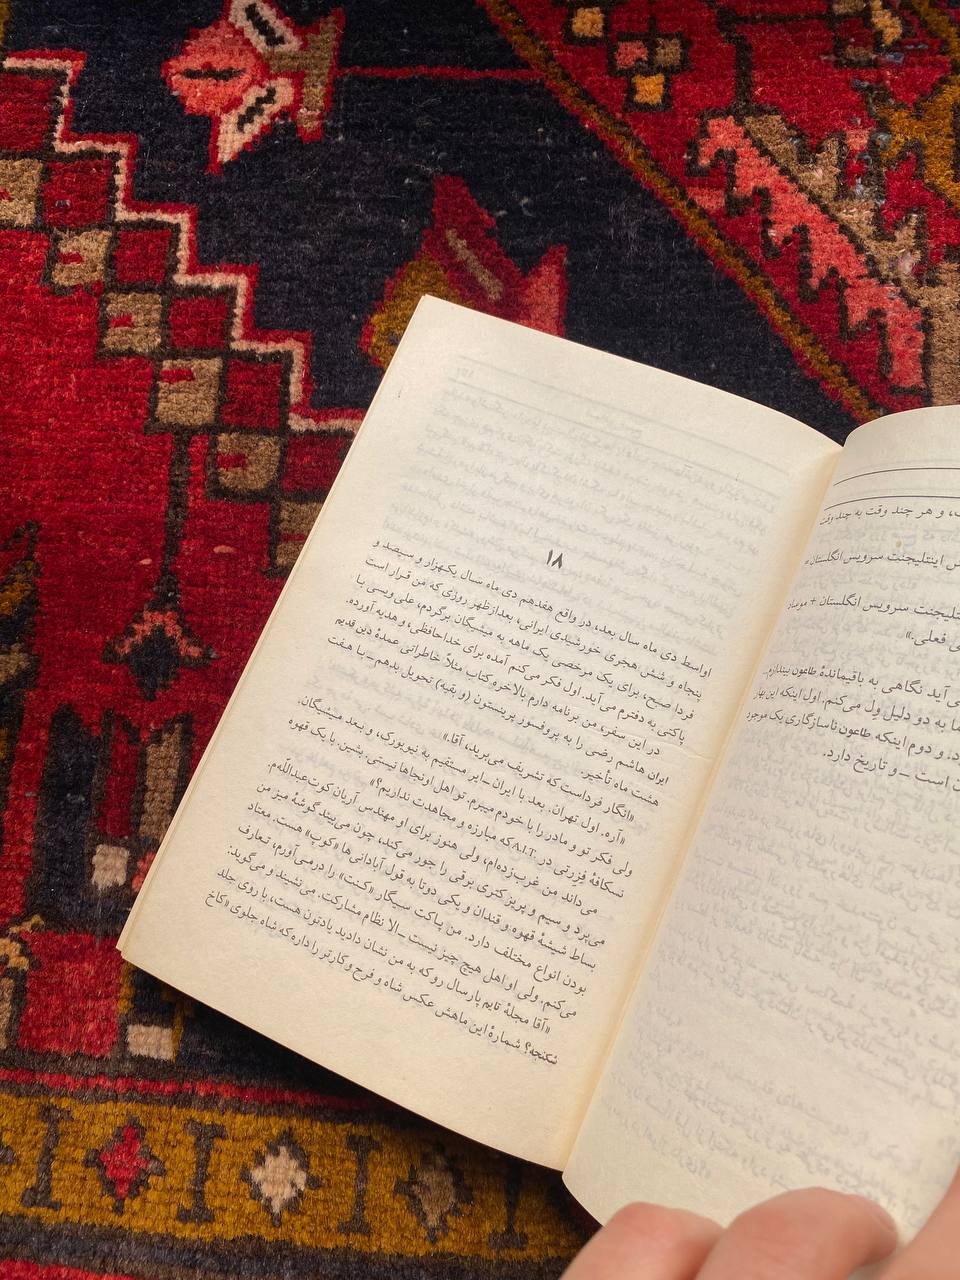 ، و هر چند وقت به چند وقت
اینتلیجنت سرویس انگلستان =
سرویس انگلستان +
فعلی.»
آید نگاهی به باقیماندهٔ طاعون بیندازم.
به دو دلیل ول می‌کنم. اول اینکه این بهار
و دوم اینکه طاعون ناسازگاری یک
است ــ و تاریخ دارد.
۱۸
اواسط دی ماه سال بعد، در واقع هفدهم دی ماه سال یکهزار و سیصد و
پنجاه و شش هجری خورشیدی ایرانی، بعدازظهر روزی که من قرار است
فردا صبح، برای یک مرخصی یک ماهه به میشیگان برگردم، علی ویسی با
پاکتی به دفترم می آید. اول فکر می‌کنم آمده برای خداحافظی، و هدیه آورده.
در این سفره من برنامه دارم بالاخره کتاب مثلاً خاطراتی عمدهٔ دین قدیم
ایران هاشم رضی را به پروفسور پرینستون (و بقیه) تحویل بدهم ــ با هفت
هشت ماه تأخیر.
«انگار فرداست که تشریف می‌برید، آقا.»
«آره. اول تهران. بعد با ایران ــ ایر مستقیم به نیویورک، و بعد میشیگان.
ولی فکر تو و مادر را با خودم میبرم. تو اهل اونجاها نیستی. بشین. با یک قهوه
نسکافهٔ فِزرتی در .A.I.T که مبارزه و مجاهدت نداریم؟»
می‌داند من غرب‌زده‌ام، ولی هنوز برای او مهندس آریان کوت‌عبداللّهم.
می‌برد و سیم و پریز کتری برقی را جور می‌کند، چون می‌بیند گوشهٔ میز من
بساط شیشهٔ قهوه و قندان و یکی دوتا به قول آبادانی‌ها «کوپ» هست. معتاد
بودن انواع مختلف دارد. من پاکت سیگار «کنت» را درمی‌آورم، تعارف
می‌کنم. ولی او اهل هیچ چیز نیست ــ الا نظام مشارکت. می‌نشیند و می‌گوید:
«آقا مجلهٔ تایم پارسال رو که به من نشان دادید یادتون هست، با روی جلد
شکنجه؟ شمارهٔ این ماهش عکس شاه و فرح و کارتر را داره که شاه جلوی «کاخ